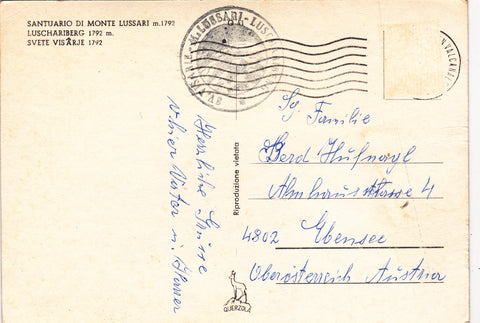 SANTUARIO DI MONTE LUSSARI m.1792
LUSCHARIBERG 1792 m.
SVETE VISARJE 1792
M.LUSSARI - LUSC
Herrliche Grüsse
v. hier Vater u.
Riproduzione vietata
Sg. Familie
Berd Hufnagl
Almhausstrasse 4
4802 Ebensee
Oberösterreich Austria
QUERZOLA